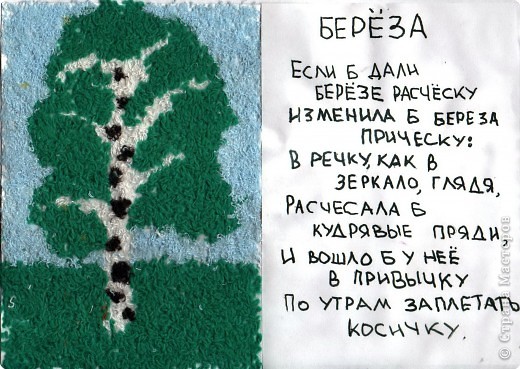 БЕРЁЗА
ЕСЛИ Б ДАЛИ
БЕРЁЗЕ РАСЧЁСКУ
ИЗМЕНИЛА Б БЕРЕЗА
ПРИЧЕСКУ:
В РЕЧКУ, КАК В
ЗЕРКАЛО, ГЛЯДЯ,
РАСЧЕСАЛА Б
КУДРЯВЫЕ ПРЯДИ,
И ВОШЛО Б У НЕЁ
В ПРИВЫЧКУ
ПО УТРАМ ЗАПЛЕТАТЬ
КОСИЧКУ.
© Страна Мастеров